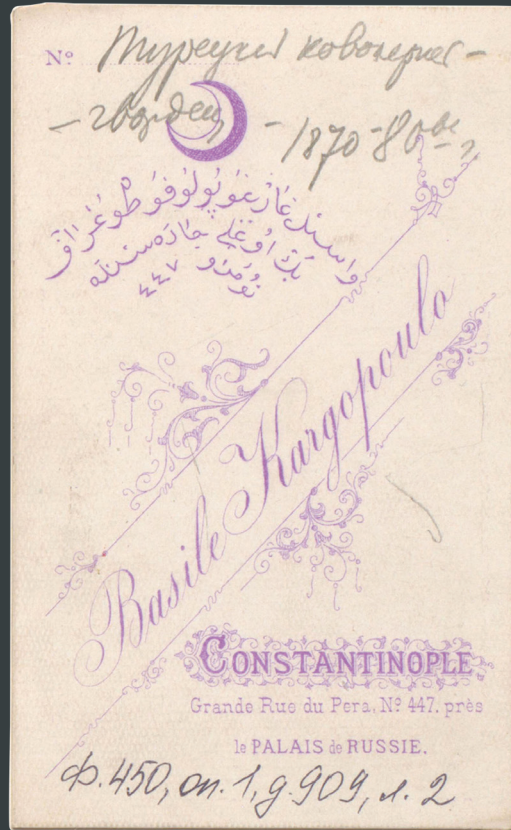 № Турецкий кавалерист-
-гвардеец - 1870-80ые г.
واسيل قارغوپولو فوطوغراف
بك اوغلي جاده سنده
نومرو ٤٤٧
Basile Kargopoulo
CONSTANTINOPLE
Grande Rue du Pera, Nº 447. près
le PALAIS de RUSSIE.
Ф. 450, оп. 1, д. 909, л. 2